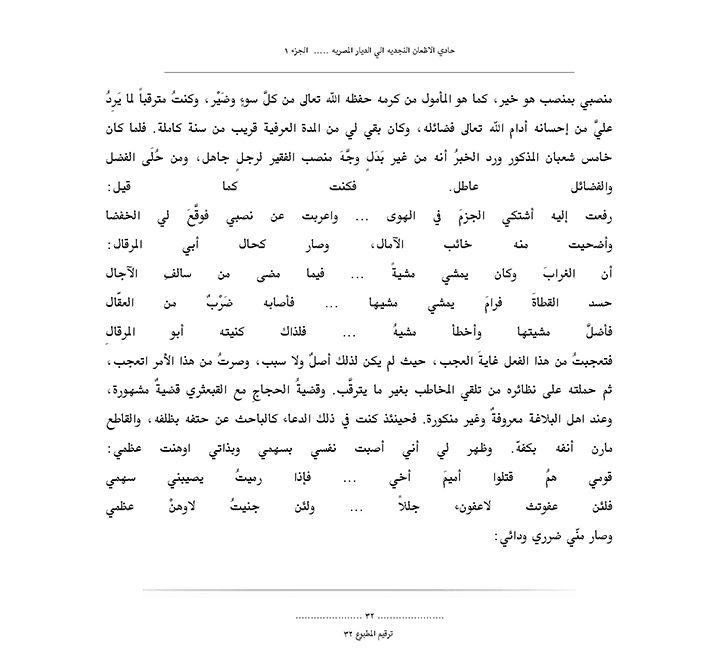 حادي الاظعان النجديه الي الديار المصريه ..... الجزء ١
منصبي بمنصب هو خير، كما هو المأمول من كرمه حفظه الله تعالى من كلّ سوءٍ وضَيْر، وكنتُ مترقباً لما يَرِدُ
عليَّ من إحسانه أدام الله تعالى فضائله، وكان بقي لي من المدة العرفية قريب من سنة كاملة. فلما كان
خامس شعبان المذكور ورد الخبرُ أنه من غير بَدَلٍ وجَّهَ منصب الفقير لرجلٍ جاهل، ومن حُلَى الفضل
والفضائل عاطل. فكنت كما قيل:
رفعت إليه أشتكي الجزمَ في الهوى ... واعربت عن نصبي فوقَّعَ لي الخفضا
وأضحيت منه خائب الآمال، وصار كحال أبي المرقال:
أن الغرابَ وكان يمشي مشيةً ... فيما مضى من سالفِ الآجال
حسد القطاةَ فرامَ يمشي مشيها ... فأصابه ضَرْبٌ من العقّال
فأضلَّ مشيتها وأخطأ مشيهُ ... فلذاك كنيته أبو المرقالِ
فتعجبتُ من هذا الفعل غايةَ العجب، حيث لم يكن لذلك أصلٌ ولا سبب، وصرتُ من هذا الأمر اتعجب،
ثم حملته على نظائره من تلقي المخاطب بغير ما يترقّب. وقضيةُ الحجاجِ مع القبعثري قضيةٌ مشهورة،
وعند اهل البلاغة معروفةٌ وغير منكورة. فحينئذ كنت في ذلك الدعاء كالباحث عن حتفه بظلفه، والقاطع
مارن أنفه بكفهّ. وظهر لي أني أصبت نفسي بسهمي وبذاتي اوهنت عظمي:
قومي همُ قتلوا أميمَ أخي ... فإذا رميتُ يصيبني سهمي
فلئن عفوتث لاعفونء جللاً ... ولئن جنيتُ لاوهنْ عظمي
وصار منّي ضرري ودائي:
...................... ٣٢ ......................
ترقيم المطبوع ٣٢